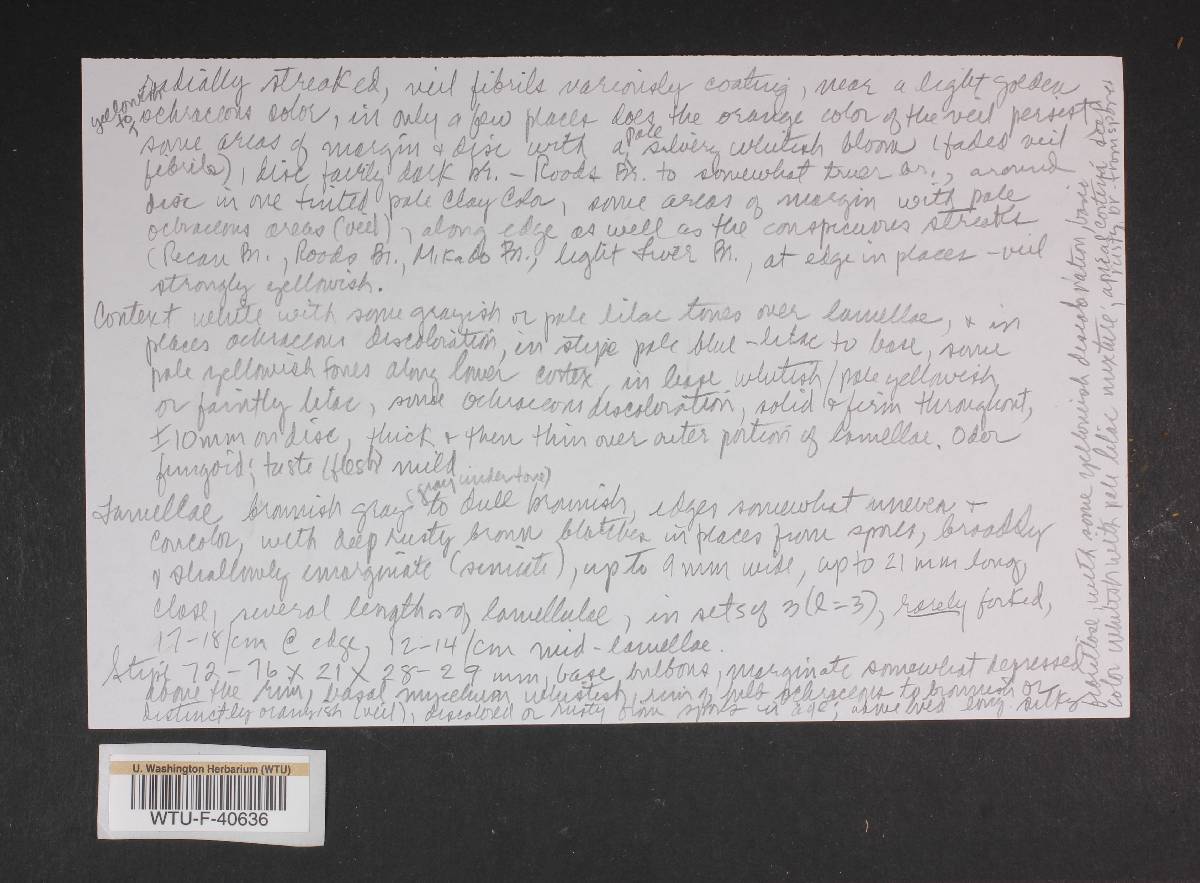 radially streaked, veil fibrils variously coating, near a light golden
yellowish to ochraceous color, in only a few places does the orange color of the veil persist
some areas of margin & disc with a pale silvery whitish bloom (faded veil
fibrils), disc fairly dark br. - Roods Br. to somewhat truer br., around
disc in one tinted pale Clay Color, some areas of margin with pale
ochraceous areas (veil), along edge as well as the conspicuous streaks
(Pecan Br., Roods Br., Mikado Br., light Liver Br., at edge in places - veil
strongly yellowish.
Context white with some grayish or pale lilac tones over lamellae, & in
places ochraceous discoloration, in stipe pale blue-lilac to base, some
pale yellowish tones along lower cortex, in base whitish/pale yellowish
or faintly lilac, some ochraceous discoloration, solid & firm throughout,
±10mm on disc, thick & then thin over outer portion of lamellae. Odor
fungoid; taste (flesh) mild
Lamellae brownish gray (gray undertone) to dull brownish, edges somewhat uneven &
concolor, with deep rusty brown blotches in places from spores, broadly
& shallowly emarginate (sinuate), up to 9 mm wide, up to 21 mm long,
close, several lengths of lamellulae, in sets of 3 (l=3), rarely forked,
17-18/cm @ edge, 12-14/cm mid-lamellae.
Stipe 72-76 x 21 x 28-29 mm, base bulbous, marginate somewhat depressed
above the rim, basal mycelium whitish, rim of bulb ochraceous to brownish or
distinctly orangish (veil), discolored or rusty from spores in age; above long silky
fibrillose, with some yellowish discoloration, basic
color whitish with pale lilac mixture, apical cortina deep
rusty br. from spores
U. Washington Herbarium (WTU)
WTU-F-40636